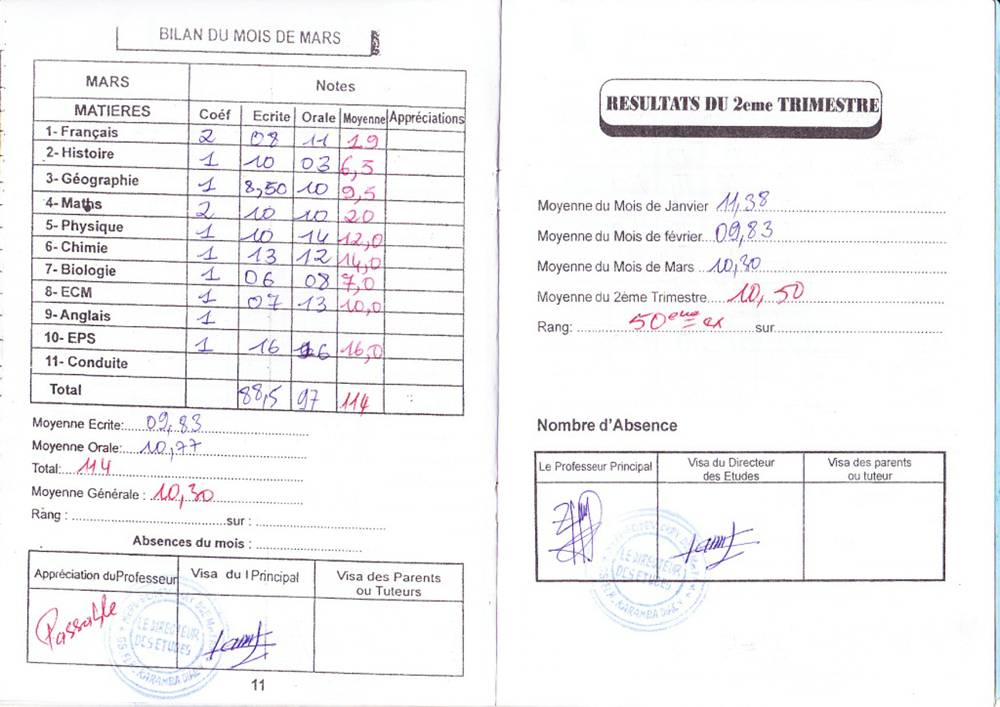 BILAN DU MOIS DE MARS
MARS Notes
MATIERES Coéf Ecrite Orale Moyenne Appréciations
1- Français 2 08 11 19
2- Histoire 1 10 03 6,5
3- Géographie 1 8,50 10 9,5
4- Maths 2 10 10 20
5- Physique 1 10 14 12,0
6- Chimie 1 13 12 14,0
7- Biologie 1 06 08 7,0
8- ECM 1 07 13 10,0
9- Anglais 1
10- EPS 1 16 16 16,0
11- Conduite
Total 88,5 97 114
Moyenne Ecrite: 09,83
Moyenne Orale: 10,77
Total: 114
Moyenne Générale : 10,30
Rang : sur :
Absences du mois :
Appréciation du Professeur Visa du l Principal Visa des Parents ou Tuteurs
Passable
LE DIRECTEUR
DES ETUDES
11
RESULTATS DU 2eme TRIMESTRE
Moyenne du Mois de Janvier 11,38
Moyenne du Mois de février 09,83
Moyenne du Mois de Mars 10,30
Moyenne du 2ème Trimestre 10,50
Rang: 50eme ex sur
Nombre d'Absence
Le Professeur Principal Visa du Directeur des Etudes Visa des parents ou tuteur
LE DIRECTEUR
DES ETUDES